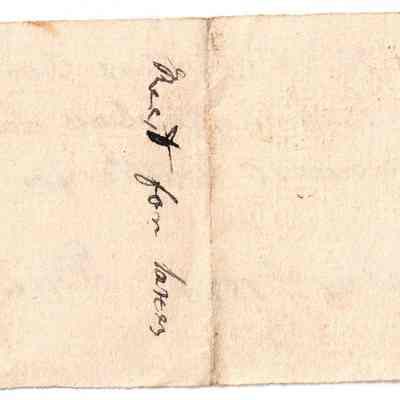 Rec,t for taxes